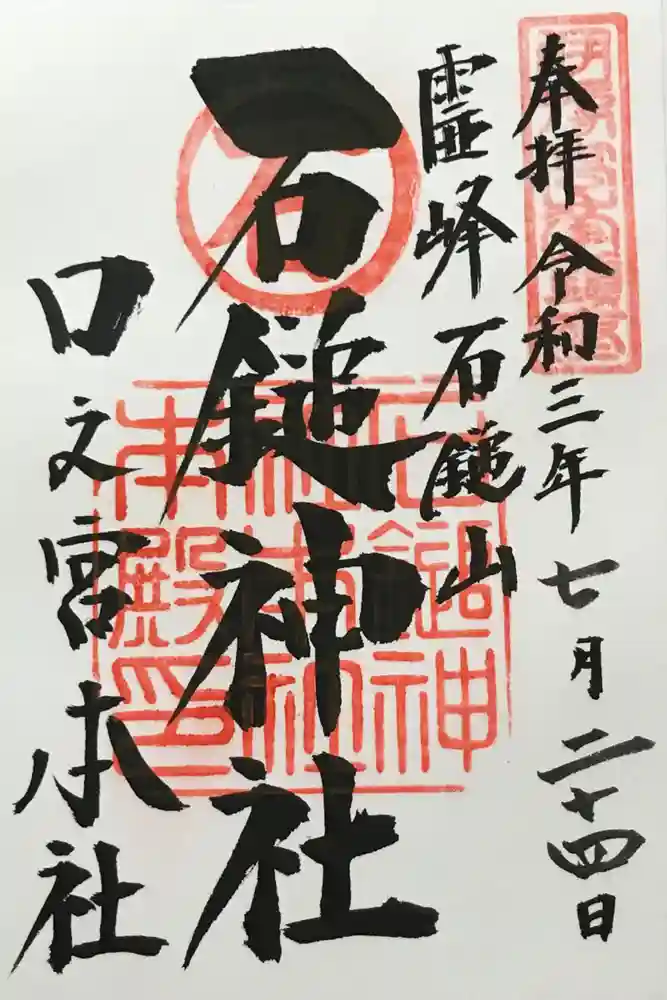 奉拝 令和三年七月二十四日
霊峰 石鎚山
石鎚神社
口之宮本社
石
石鎚神
社本社
本殿印